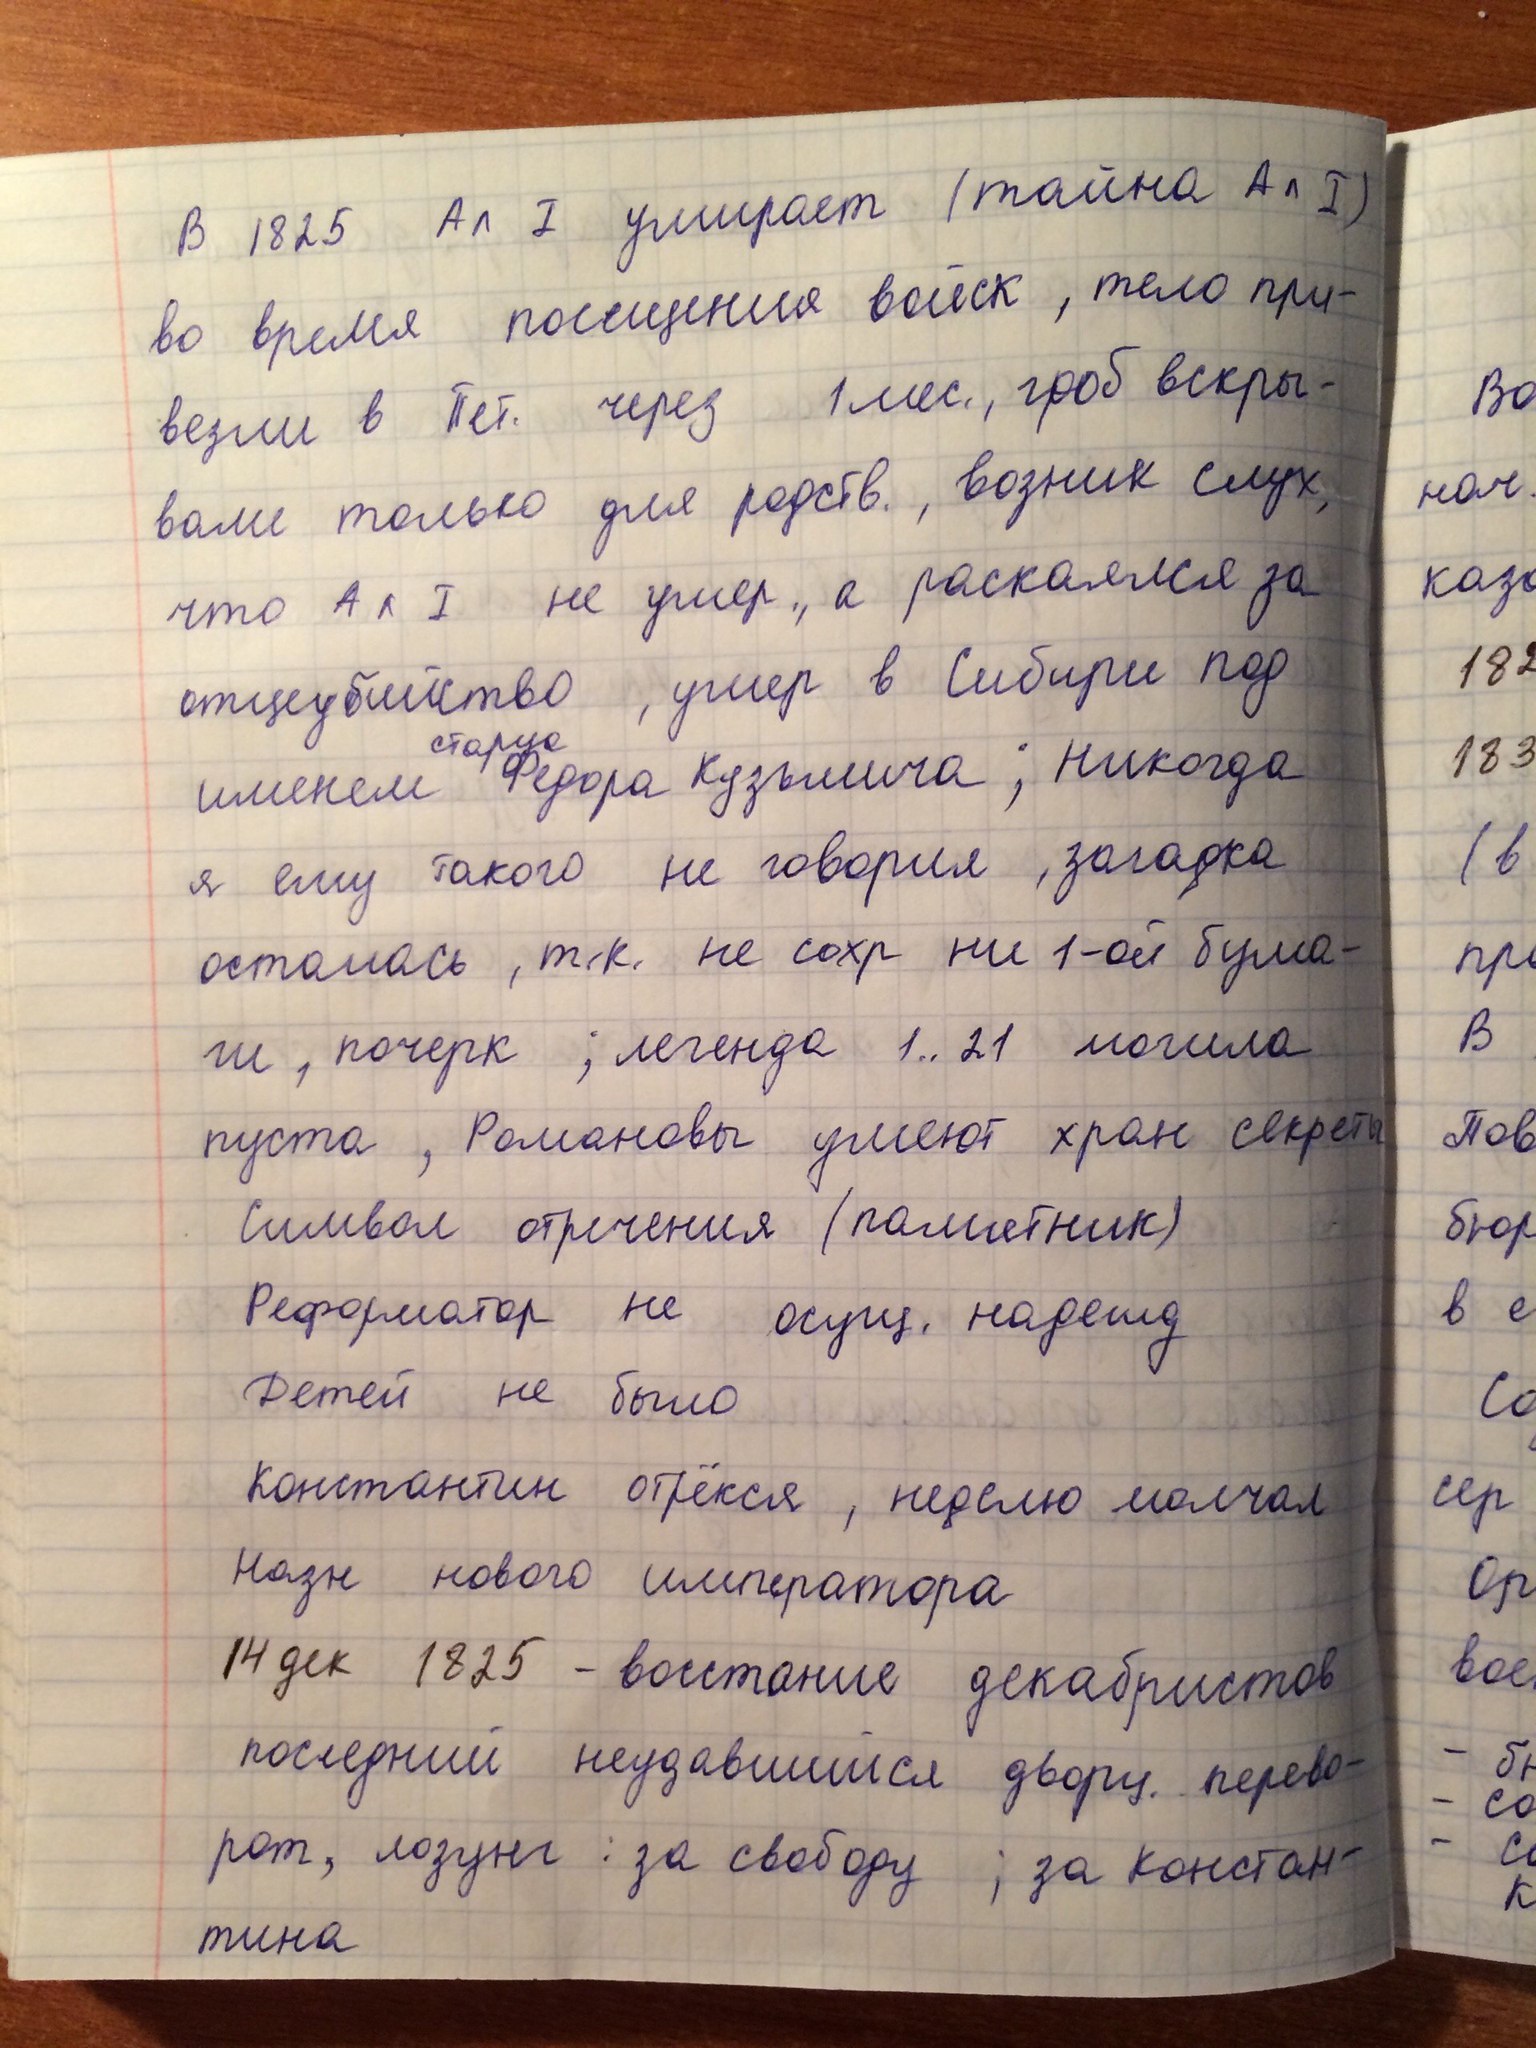 В 1825 Ал I умирает (тайна Ал I)
во время посещения войск, тело при-
везли в Пет. через 1 мес., гроб вскры-
вали только для родств., возник слух,
что Ал I не умер., а раскаялся за
отцеубийство, умер в Сибири под
старца
именем Федора Кузьмича; Никогда
я ему такого не говорил, загадка
осталась, т.к. не сохр ни 1-ой бума-
ги, почерк; легенда 1.. 21 могила
пуста, Романовы умеют хран секреты
Символ отречения (памятник)
Реформатор не осущ. надежд
Детей не было
Константин отрёкся, неделю молчал
Назн нового императора
14 дек 1825 - восстание декабристов
последний неудавшийся дворц. перево-
рот, лозунг: за свободу; за Констан-
тина
Во
нач.
каза
182
183
(в
про
В
Пов
бюр
в с
Со
сер
Ор
вое
- бю
- со
- со
к